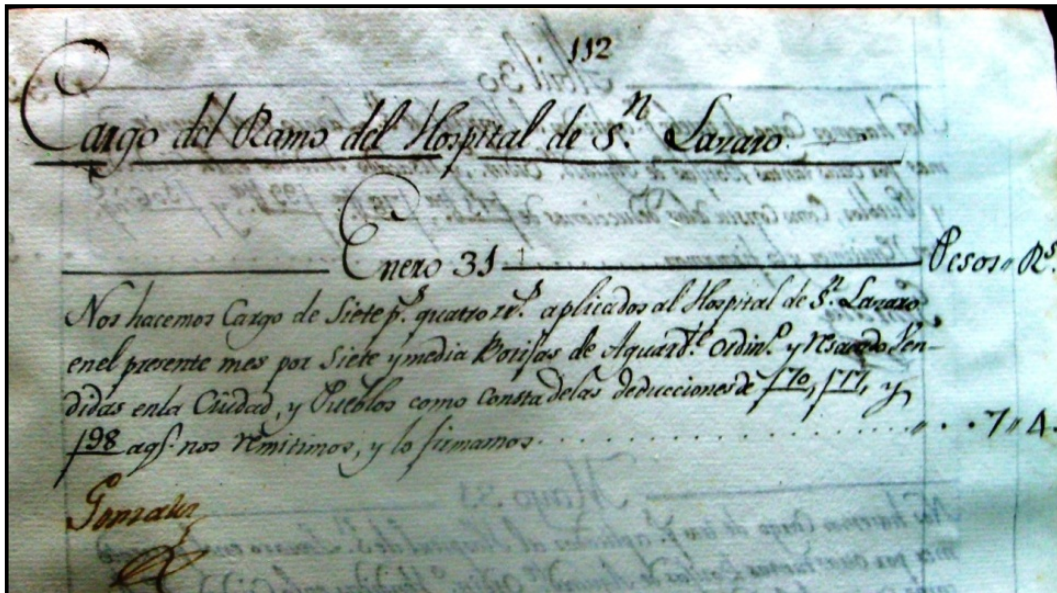 112
Cargo del Ramo del Hospital de S.n Lazaro.
Enero 31 Pesos " R.s
Nos hacemos Cargo de Siete p.s quatro rr.s aplicados al Hospital de S.n Lazaro
en el presente mes por Siete y media Botijas de Aguard.te Ordin.o y Resacado Ven-
didas en la Ciudad, y Pueblos como consta de las deducciones de f 70, f 77, y
f 98 aq.e nos remitimos, y lo firmamos . . . . . . . . . . . . . . . . " . . 7 " 4.
Gonzalez